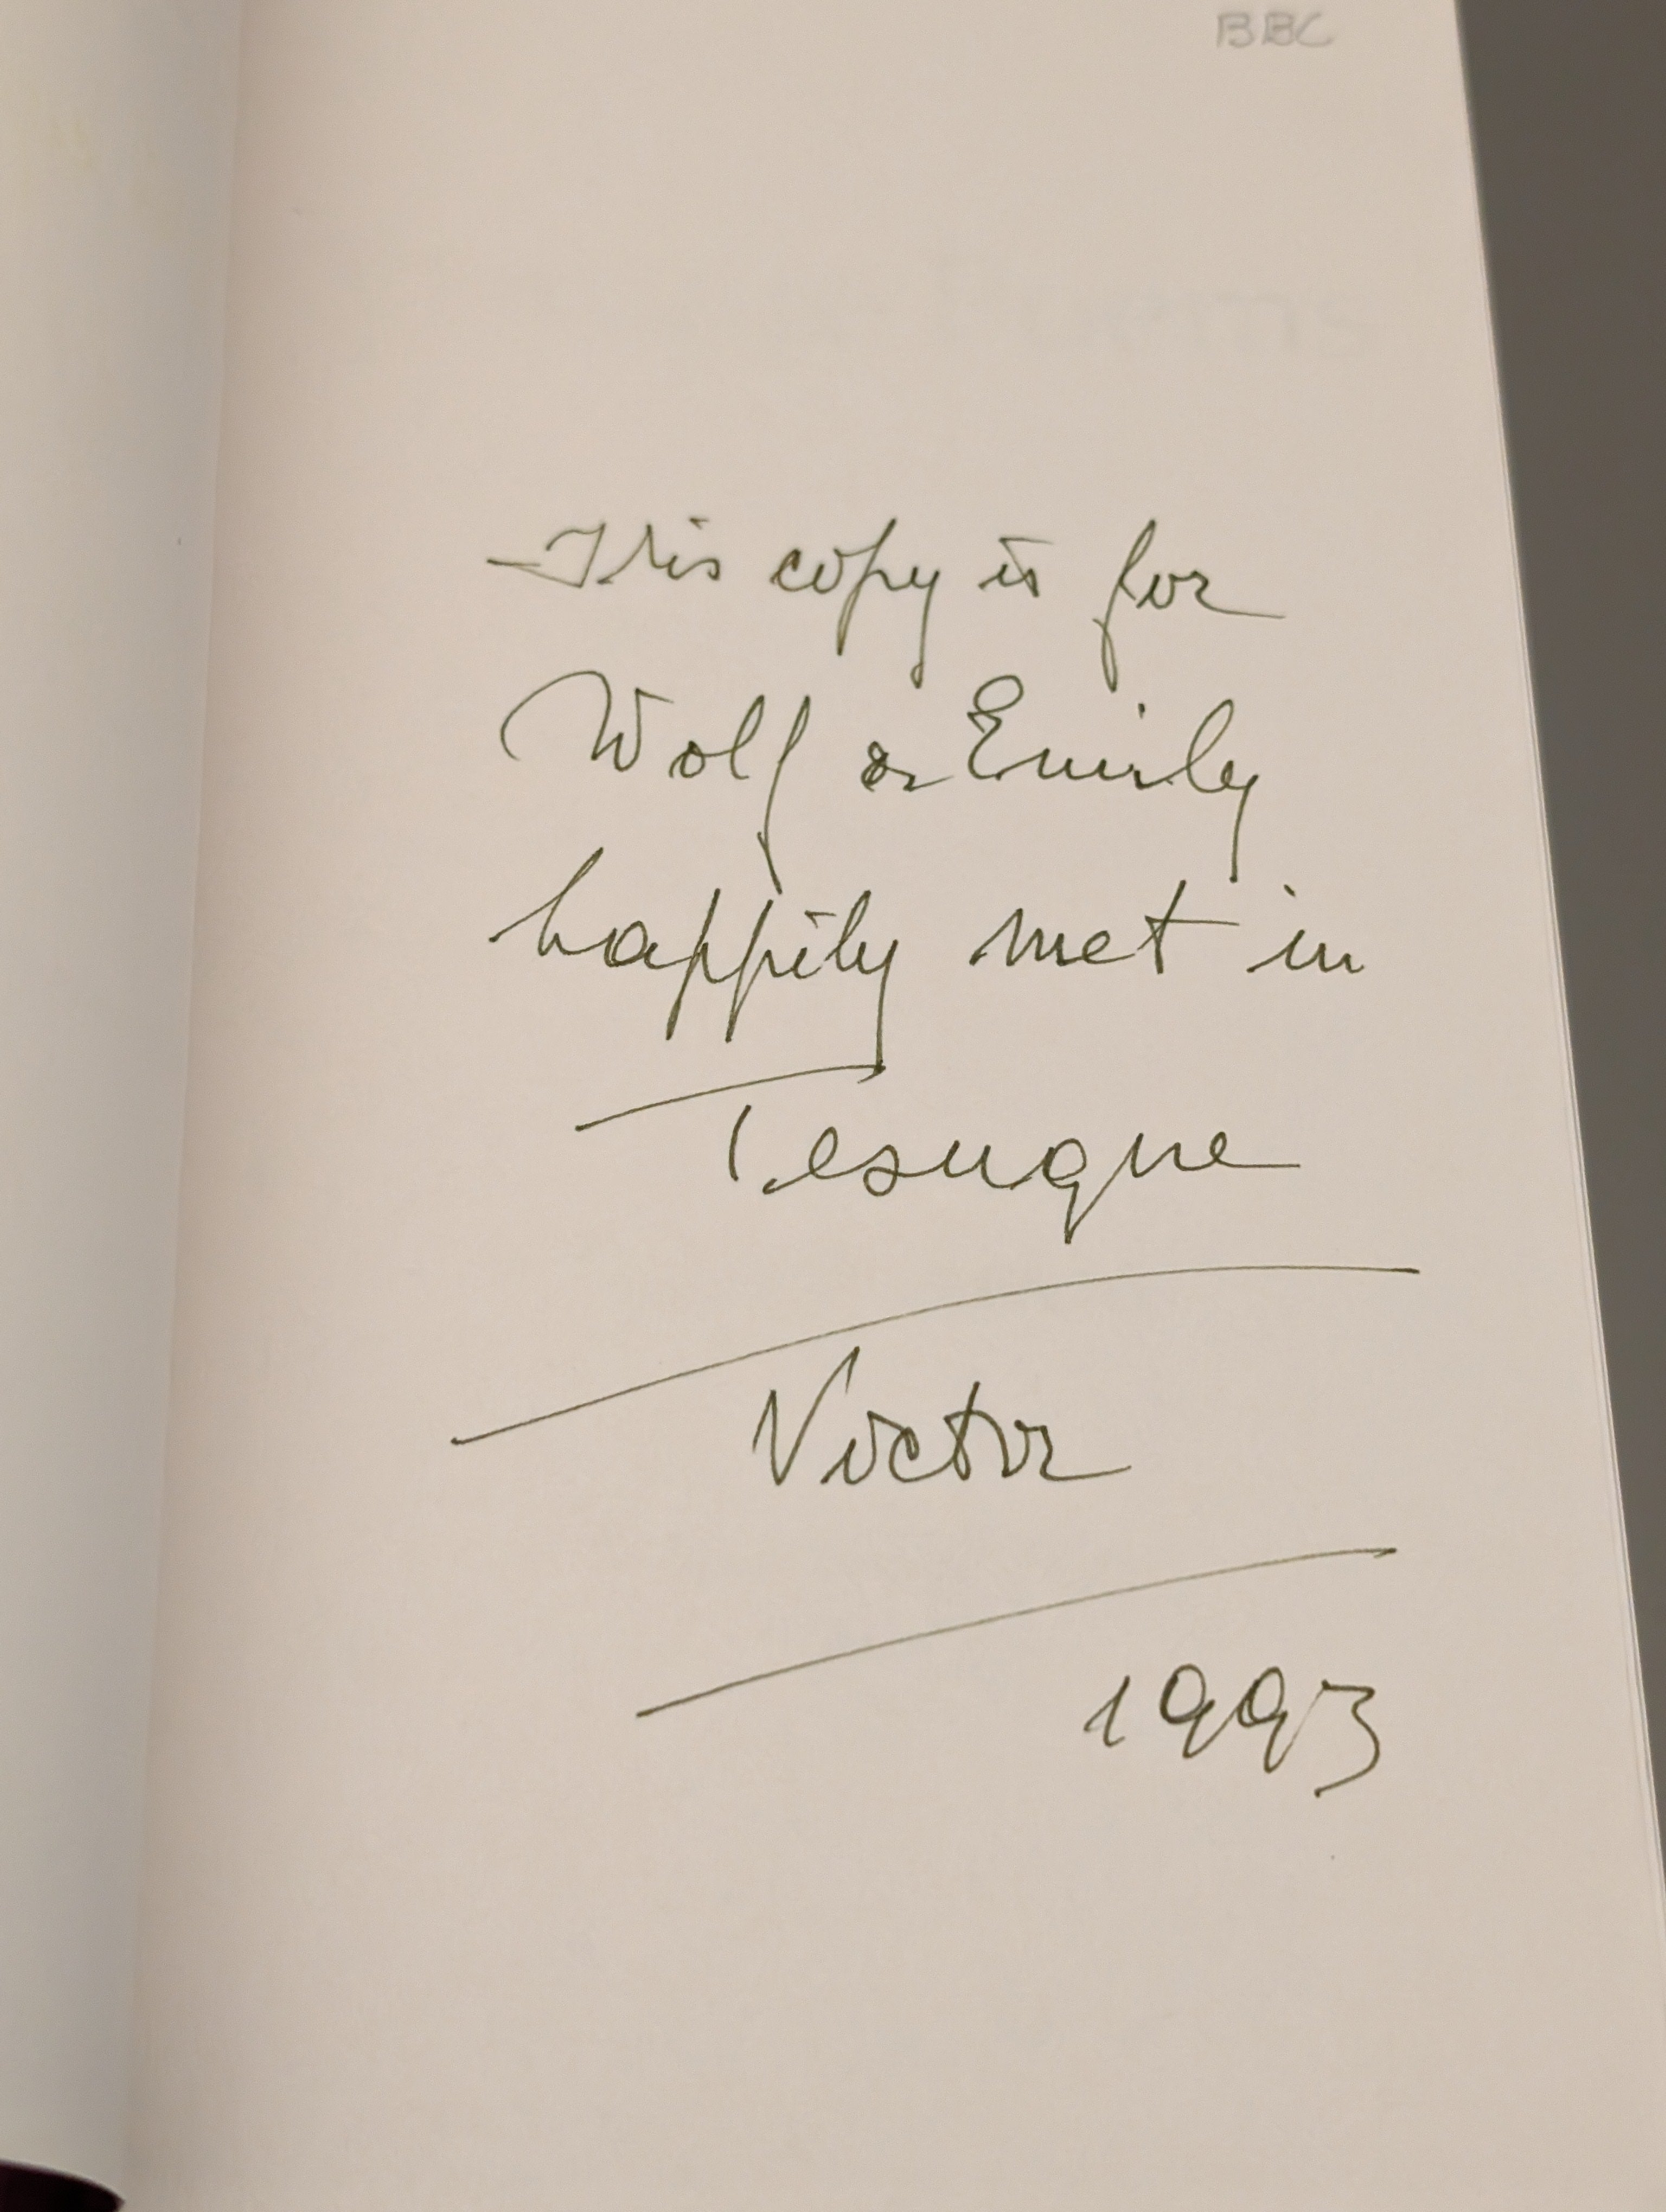 BBC
This copy is for
Wolf & Emily
happily met in
Tesuque
Victor
1993